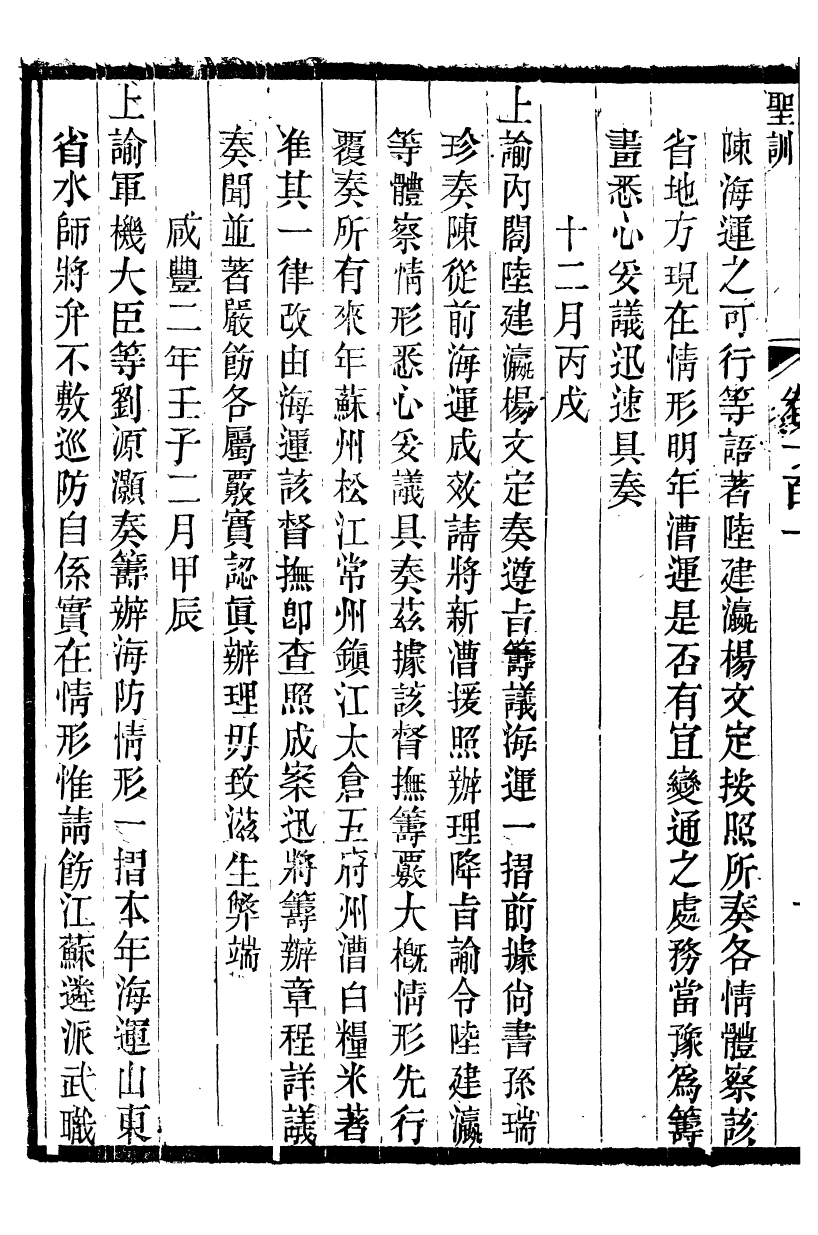 聖訓
卷一百一
陳海運之可行等語著陸建瀛楊文定按照所奏各情體察該
省地方現在情形明年漕運是否有宜變通之處務當豫爲籌
畫悉心妥議迅速具奏
十二月丙戌
上諭內閣陸建瀛楊文定奏遵旨籌議海運一摺前據尚書孫瑞
珍奏陳從前海運成效請將新漕援照辦理降旨諭令陸建瀛
等體察情形悉心妥議具奏茲據該督撫籌覈大概情形先行
覆奏所有來年蘇州松江常州鎮江太倉五府州漕白糧米著
准其一律改由海運該督撫卽查照成案迅將籌辦章程詳議
奏聞並著嚴飭各屬覈實認眞辦理毋致滋生弊端
咸豐二年壬子二月甲辰
上諭軍機大臣等劉源灝奏籌辦海防情形一摺本年海運山東
省水師將弁不敷巡防自係實在情形惟請飭江蘇遴派武職